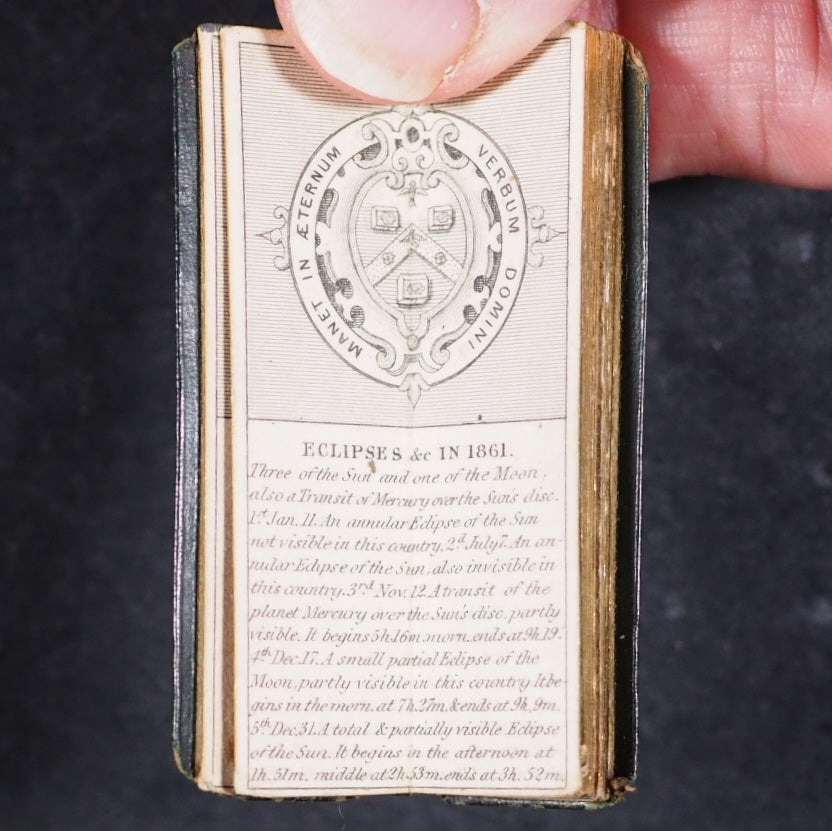 VERBUM DOMINI
MANET IN ÆTERNUM
ECLIPSES &c IN 1861.
Three of the Sun and one of the Moon,
also a Transit of Mercury over the Sun's disc.
1st Jan. 11. An annular Eclipse of the Sun
not visible in this country. 2d July 7. An an-
nular Eclipse of the Sun, also invisible in
this country. 3rd Nov. 12. A transit of the
planet Mercury over the Sun's disc, partly
visible. It begins 5h.16m. morn. ends at 9h.19.
4th Dec. 17. A small partial Eclipse of the
Moon, partly visible in this country It be-
gins in the morn. at 7h.27m. & ends at 9h. 9m.
5th Dec. 31. A total & partially visible Eclipse
of the Sun. It begins in the afternoon at
1h. 51m. middle at 2h. 53m. ends at 3h. 52m.